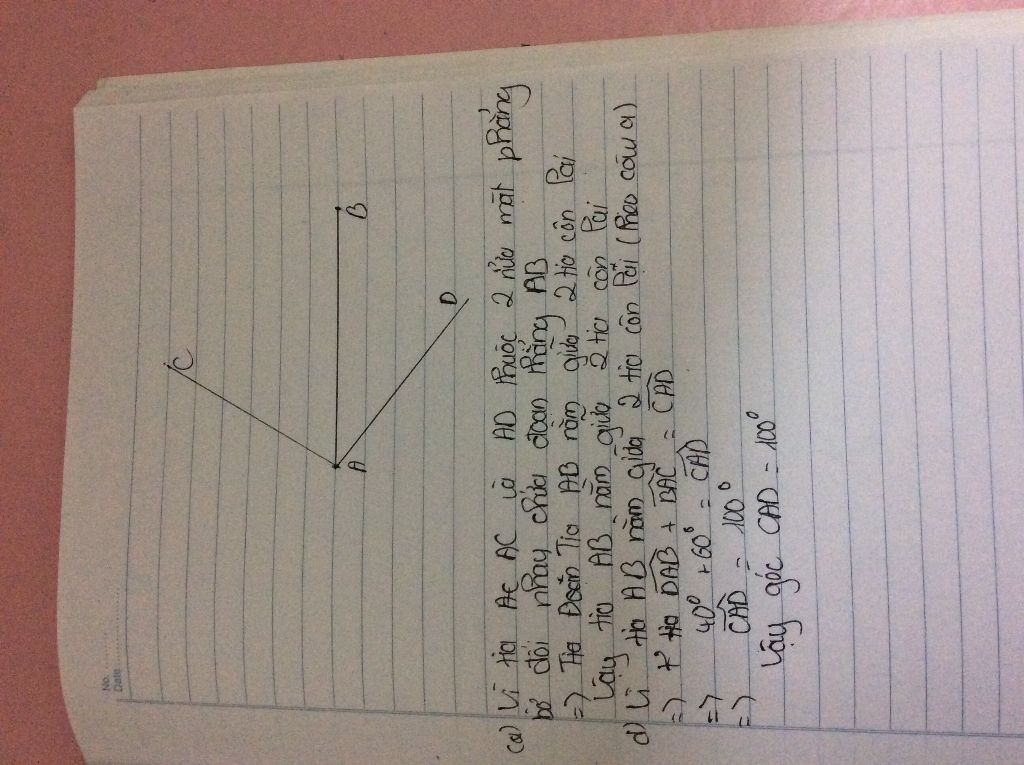 No.
Date
C
B
A
D
(a) Vì tia AC và AD thuộc 2 nửa mặt phẳng
bờ đối nhau chứa đoạn thẳng AB
=> Tia AB nằm giữa 2 tia còn lại
Vậy tia AB nằm giữa 2 tia còn lại
d) Vì tia AB nằm giữa 2 tia còn lại (theo câu a)
=> DAB + BAC = CAD
=> 40° + 60° = CAD
=> CAD = 100°
Vậy góc CAD = 100°